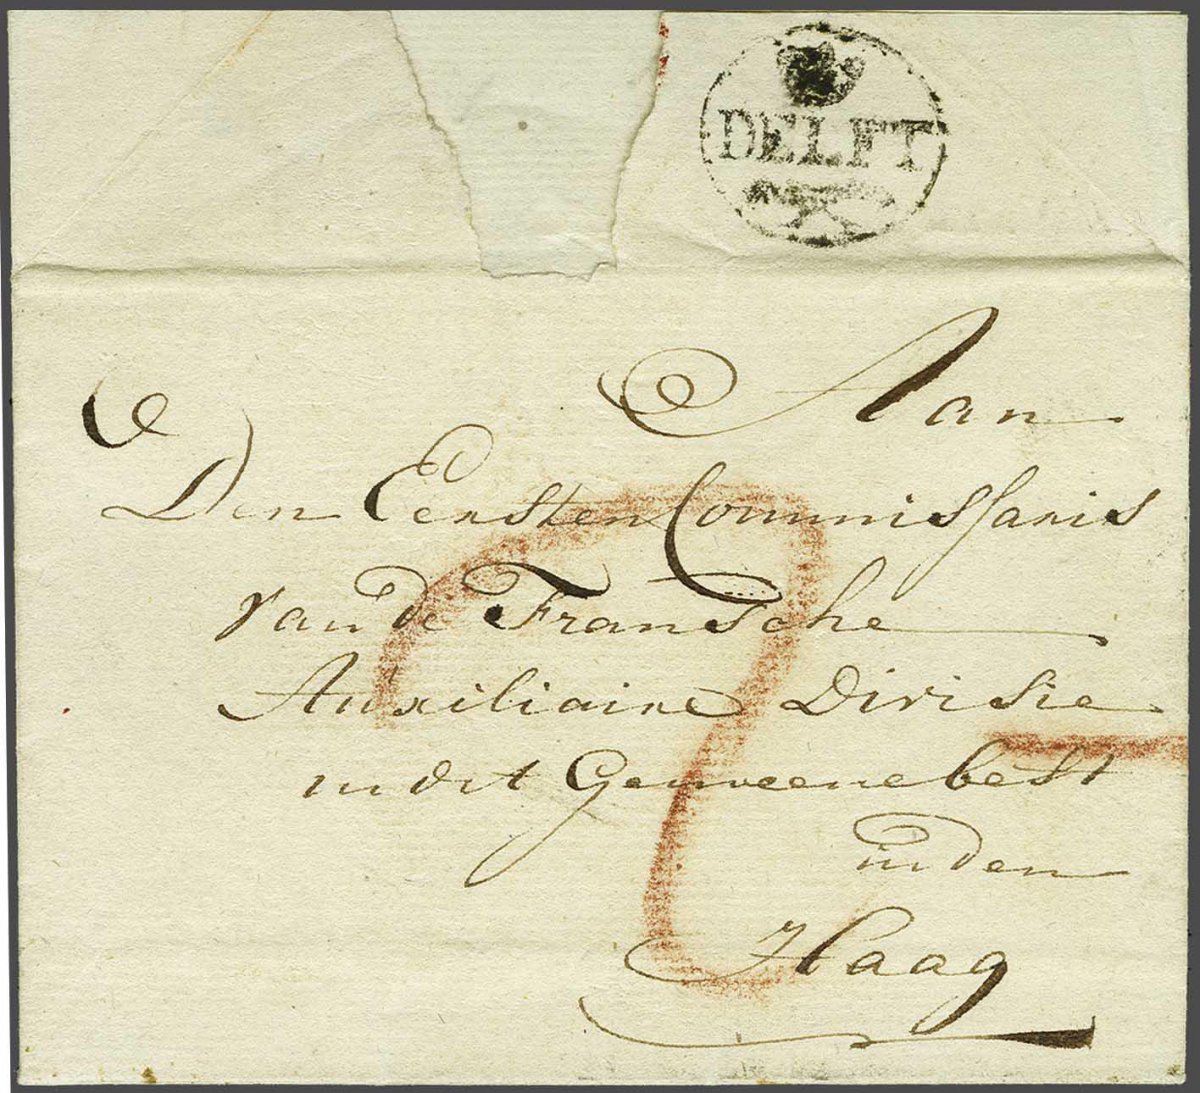 DELFT
Aan
Den Eersten Commissaris
van de Fransche
Auxiliaire Divisie
in dit Gemeenebest
in den
Haag